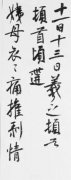 十一月十三日羲之頓首
頓首頃遘
姨母哀哀痛摧剥情